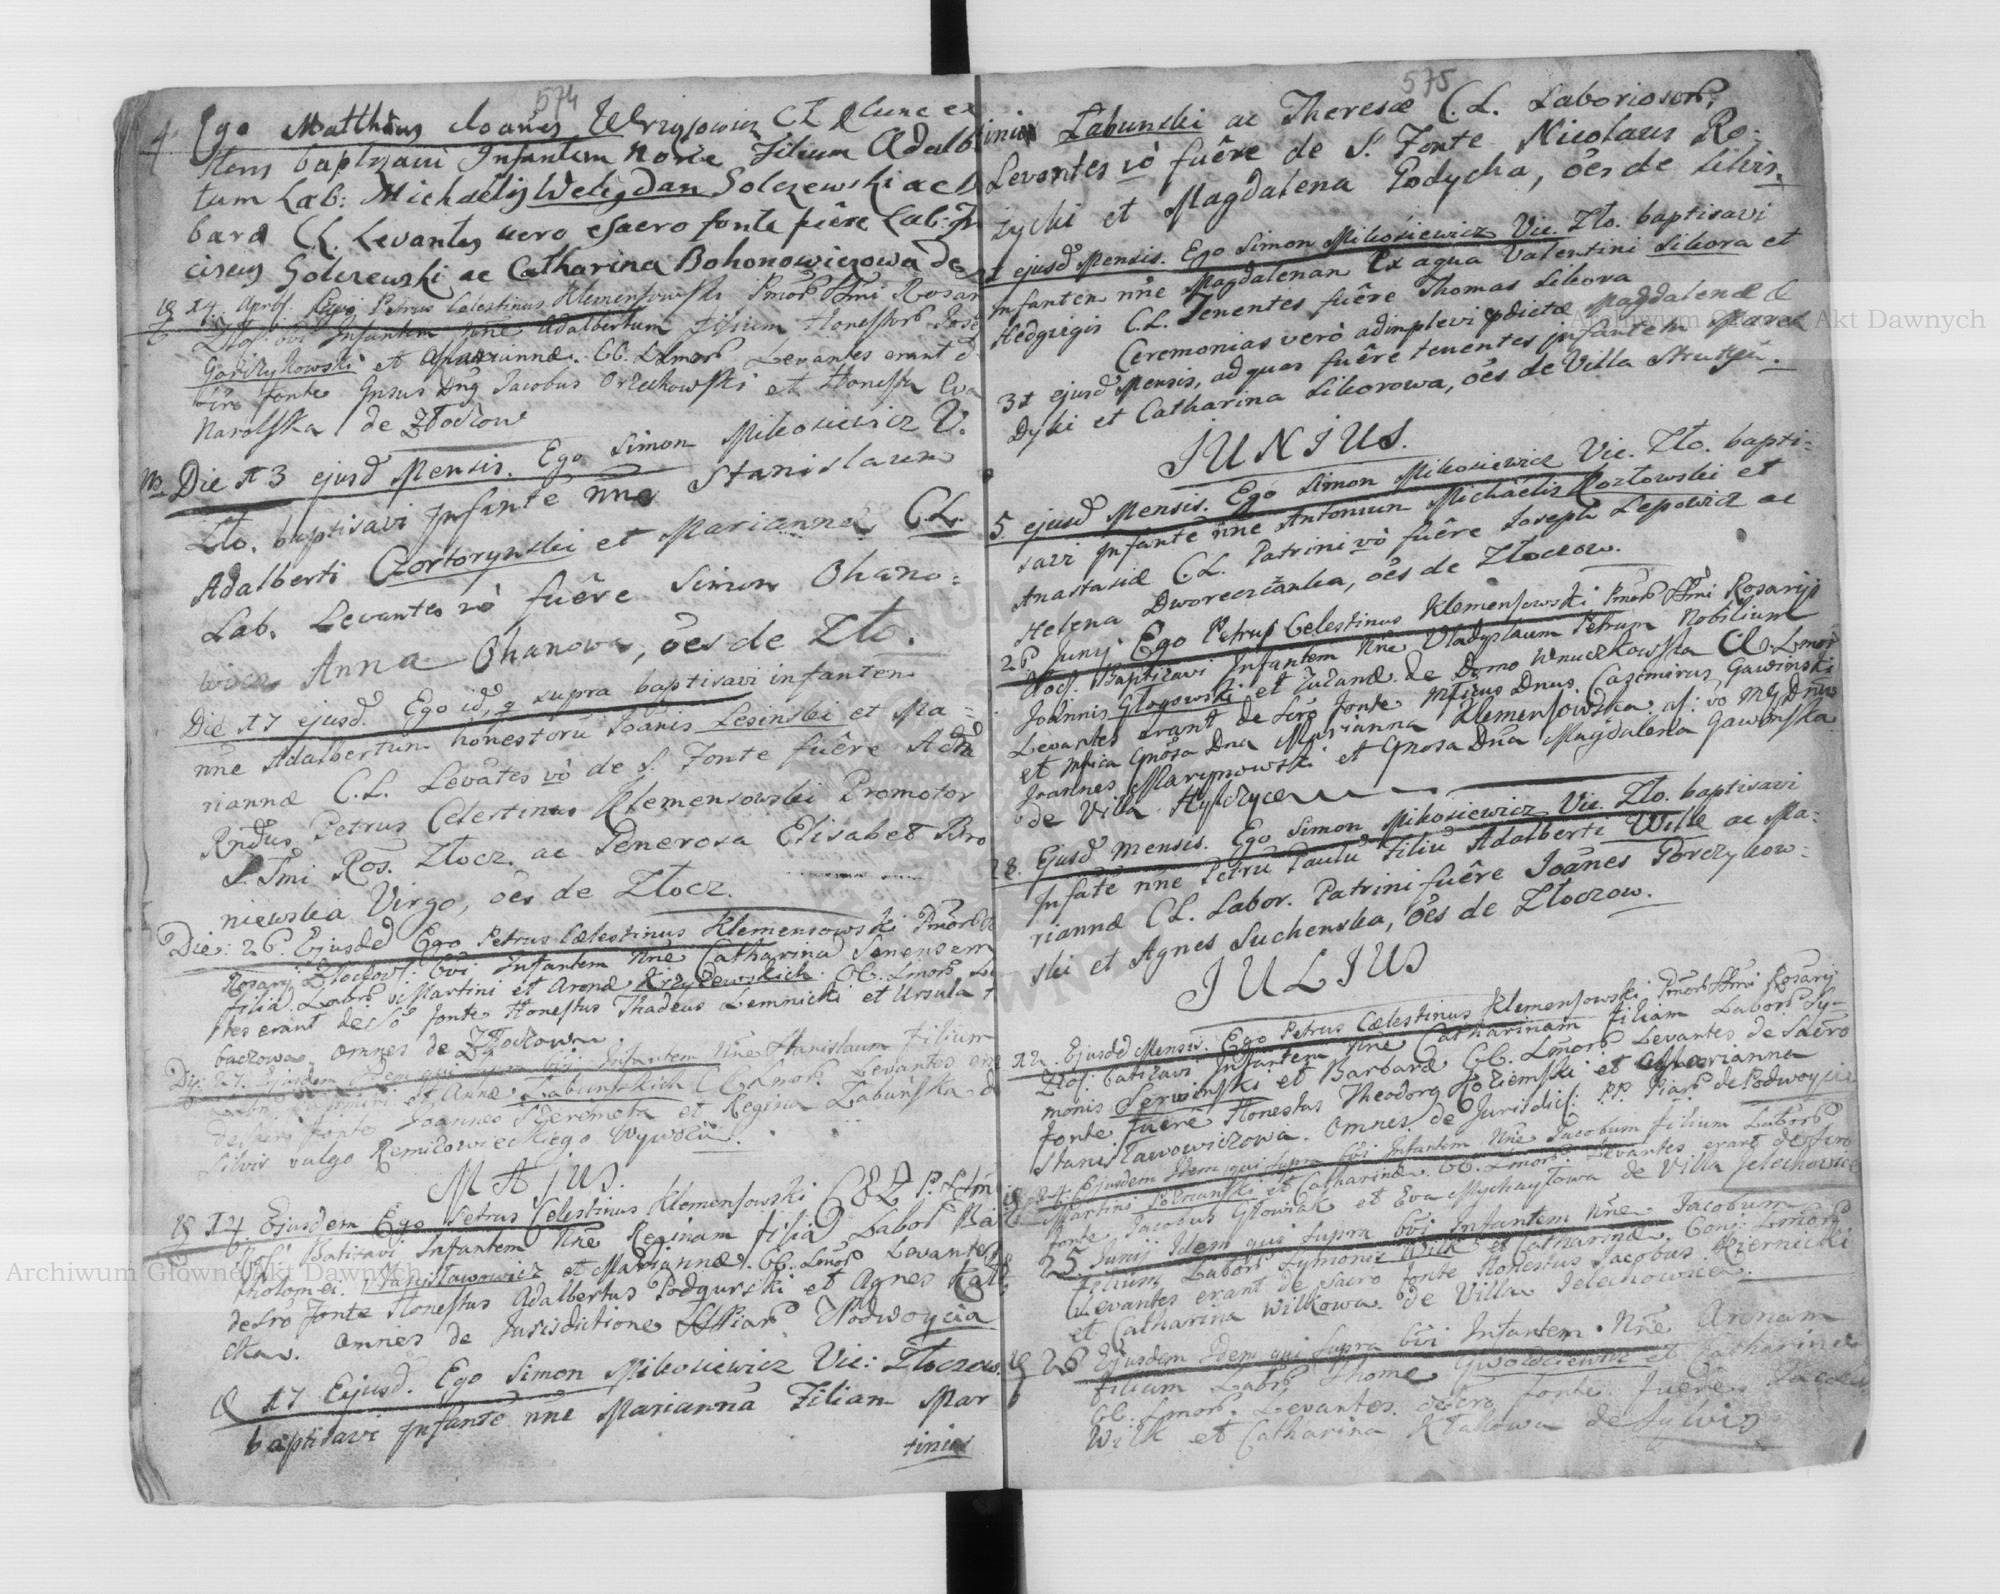 574
4 Ego Matthæus Joañes Wrzysowicz CL tunc ex
tens baptisavi Infantem Noīe Filium Adalb
tum Lab: Michaelis Welygdan Solczewski ac B
bara CL. Levantes vero e sacro fonte fuêre Lab: Fr
ciscus Solczewski ac Catharina Bohonowiczowa de
14. April. Ego Petrus Celestinus Klemensowski Pmor SSmi Rosar
Złoč. bvi Infantem Nne Adalbertum filium Honestor Jose
Gardzykowski et Mariannæ. CC. Lmor. Levantes erant d
sčro fonte Gnsus Dnġ Jacobus Orzechowski et Honesta Eva
Narolska de Złočow
Die 13 ejusđ Mensis. Ego Simon Mikosiewicz V.
Zło. baptisavi Infantē nñe Stanislaum
Adalberti Czortorynski et Mariannæ C.L.
Lab. Levantes vò fuêre Simon Ohano=
wicz Anna Ohanowa, ōes de Zło.
Die 17 ejusđ. Ego iđ, q supra baptisavi infantem
nñe Adalbertum honestorū Joanis Lesinski et Ma=
riannæ C.L. Levātes vò de S. Fonte fuêre Adm
Rndus Petrus Celestinus Klemensowski Promotor
S. Smi Ros. Złocz. ac Generosa Elisabet Bro
niewska Virgo, ōes de Złocz.
Die: 26. Ejusded Ego Petrus Cælestinus Klemensowski Pmor SS
Rosarij Złočows: bvi Infantem Nne Catharinā Senensem
filiā Labr. Martini et Aronæ Krzyżewskich. CC. Lmor. Le
ntes erant de Sčo fonte Honestus Thadeus Lemnicki et Ursula
baczowa omnes de Złočowa.
Die 27. Ejusdem Idem qui supra bvi Infantem Nne Stanislaum filium
et Annæ Łabunskich CC Lmor. Levantes era
de sacro fonte Joannes Szeremeta et Regina Łabunska d
Silvis vulgo Remizowieckiego Wywozu.
MAJUS.
14. Ejusdem Ego Petrus Celestinus Klemensowski
Batisavi Infantem Nne Reginam filiā Labor Bar
tholomei. Stanisławowicz et Mariannæ. CC. Lmor Levantes
de sčro fonte Honestus Adalbertus Podgurski et Agnes
cka. omnes de Jurisdictione Piar Podwoycia
17 Ejusđ. Ego Simon Mikosiewicz Vic: Złoczow.
baptisavi Infantē nñe Mariannā Filiam Mar
tinis
575
tinis Łabunski ac Theresæ C.L. Laboriosor,
Levantes vò fuêre de S. Fonte Nicolaus Ro=
zycki et Magdalena Godycha, ōes de Silvis.
ejusđ Mensis. Ego Simon Mikosiewicz Vic. Zło. baptisavi
Infantem nñe Magdalenam Ex aqua Valentini Sikora et
Hedvigis C.L. Tenentes fuêre Thomas Sikora
Ceremonias verò adimplevi pdictæ Magdalenæ
31 ejusđ Mensis, ad quas fuêre tenentes infantem Marcus
Dyki et Catharina Sikorowa, ōes de Villa Strutyn.
JUNIUS.
5 ejusđ Mensis. Ego Simon Mikosiewicz Vic. Zło. bapti=
savi Infantē nñe Antonium Michaelis Kozłowski et
Anastasiæ C.L. Patrini vò fuêre Joseph Lepowicz ac
Helena Dworeczanka, ōes de Złoczow.
26 Junij Ego Petrus Celestinus Klemensowski Pmor SSmi Rosarij
Złoč. Baptisavi Infantem Nne Vladyslaum Petrum Nobilium
Joannis Głogowski et Zuzanæ de Domo Wnuczkowska CC. Lmor
Levantes erant de Sčro fonte Mficus Dnus. Casimirus Gawinski
et Mfica Gnosa Dna Marianna Klemensowska. as: vò Mg Dnus
Joannes Marynowski et Gnosa Dna Magdalena Gawinska
de Villa Hylczyce
28. Ejusđ Mensis. Ego Simon Mikosiewicz Vic. Zło. baptisavi
Infātē nñe Petrū Paulū Filiū Adalberti Wilk ac Ma=
riannæ C.L. Labor. Patrini fuêre Joānes Porczykow=
ski et Agnes Suchenska, ōes de Złoczow.
JULIUS
12. Ejusded Mensis. Ego Petrus Cælestinus Klemensowski Pmor SSmi Rosarij
Złoč: batisavi Infantem Nne Catharinam filiam Labor Sy=
monis Serwinski et Barbaræ CC. Lmor Levantes de Sacro
fonte fuere Honestus Theodorg Koziemski et Marianna
Stanisławowiczowa. omnes de Jurisdic: P.P. Piar de Podwoycie
24. Ejusdem Idem qui supra bvi Infantem Nne Jacobum filium Labor
Martini et Catharinæ. CC. Lmor. Levantes erant de sčro
fonte Jacobus Głowiak et Eva Mychayłowa de Villa Jelechowice
25 Junij Idem qui supra bvi Infantem Nne Jacobum
filium Labor Symonis Wilk et Catharinæ. Conj: Lmor
Levantes erant de sacro fonte Honestus Jacobus Kiernicki
et Catharina Wilkowa. de Villa Jelechowice.
26 Ejusdem Idem qui supra bvi Infantem Nne Annam
filium Labr Thome Gwoździewicz et Catharinæ
CC. Lmor. Levantes de sčro fonte fuere Jacob
Wilk et Catharina Ktakowa de Sylvis
Archiwum Główne Akt Dawnych
Archiwum Główne Akt Dawnych